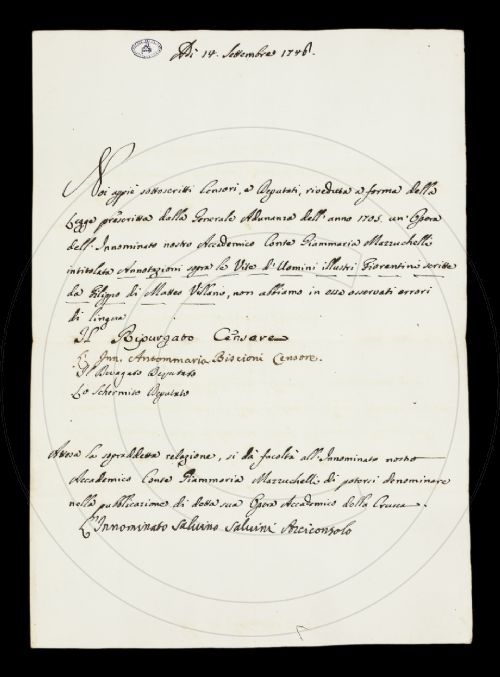 Adì 14. Settembre 1746.
Noi appiè sottoscritti Censori, e Deputati, riveduta a forma della
Legge prescritta dalla Generale Adunanza dell'anno 1705. un'Opera
dell'Innominato nostro Accademico Conte Giammaria Mazzuchelli
intitolata Annotazioni sopra le Vite d'Uomini illustri Fiorentini scritte
da Filippo di Matteo Villani, non abbiamo in essa osservati errori
di lingua
Il Ripurgato Censore
L'Inn. Antommaria Biscioni Censore.
Il Deputato
Lo Schermito Deputato
Attesa la sopraddetta relazione, si dà facoltà all'Innominato nostro
Accademico Conte Giammaria Mazzuchelli di potersi denominare
nella pubblicazione di detta sua Opera Accademico della Crusca.
L'Innominato Salvino Salvini Arciconsolo